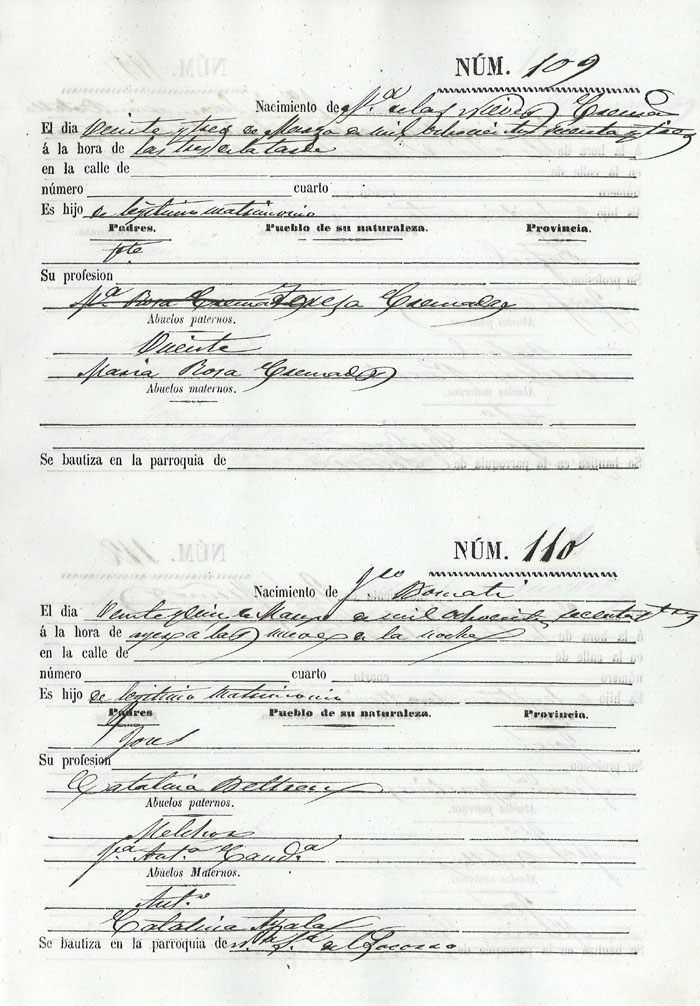 NÚM. 109
Nacimiento de M.ª de las Nieves
El dia Veinte y tres de Marzo de mil ochocientos sesenta y tres
á la hora de las tres de la tarde
en la calle de
número cuarto
Es hijo de legitimo matrimonio
Padres. Pueblo de su naturaleza. Provincia.
Su profesion
Teresa Cremades
Abuelos paternos.
Vicente
Maria Rosa Cremades
Abuelos maternos.
Se bautiza en la parroquia de
NÚM. 110
Nacimiento de
El dia Veinte y de Marzo de mil ochocientos sesenta y tres
á la hora de ayer a las nueve de la noche
en la calle de
número cuarto
Es hijo de legitimo matrimonio
Padres Pueblo de su naturaleza. Provincia.
Su profesion
Catalina Beltran
Abuelos paternos.
Melchor
Abuelos Maternos.
Ant.º
Catalina Ayala
Se bautiza en la parroquia de N.ª S.ª del Socorro